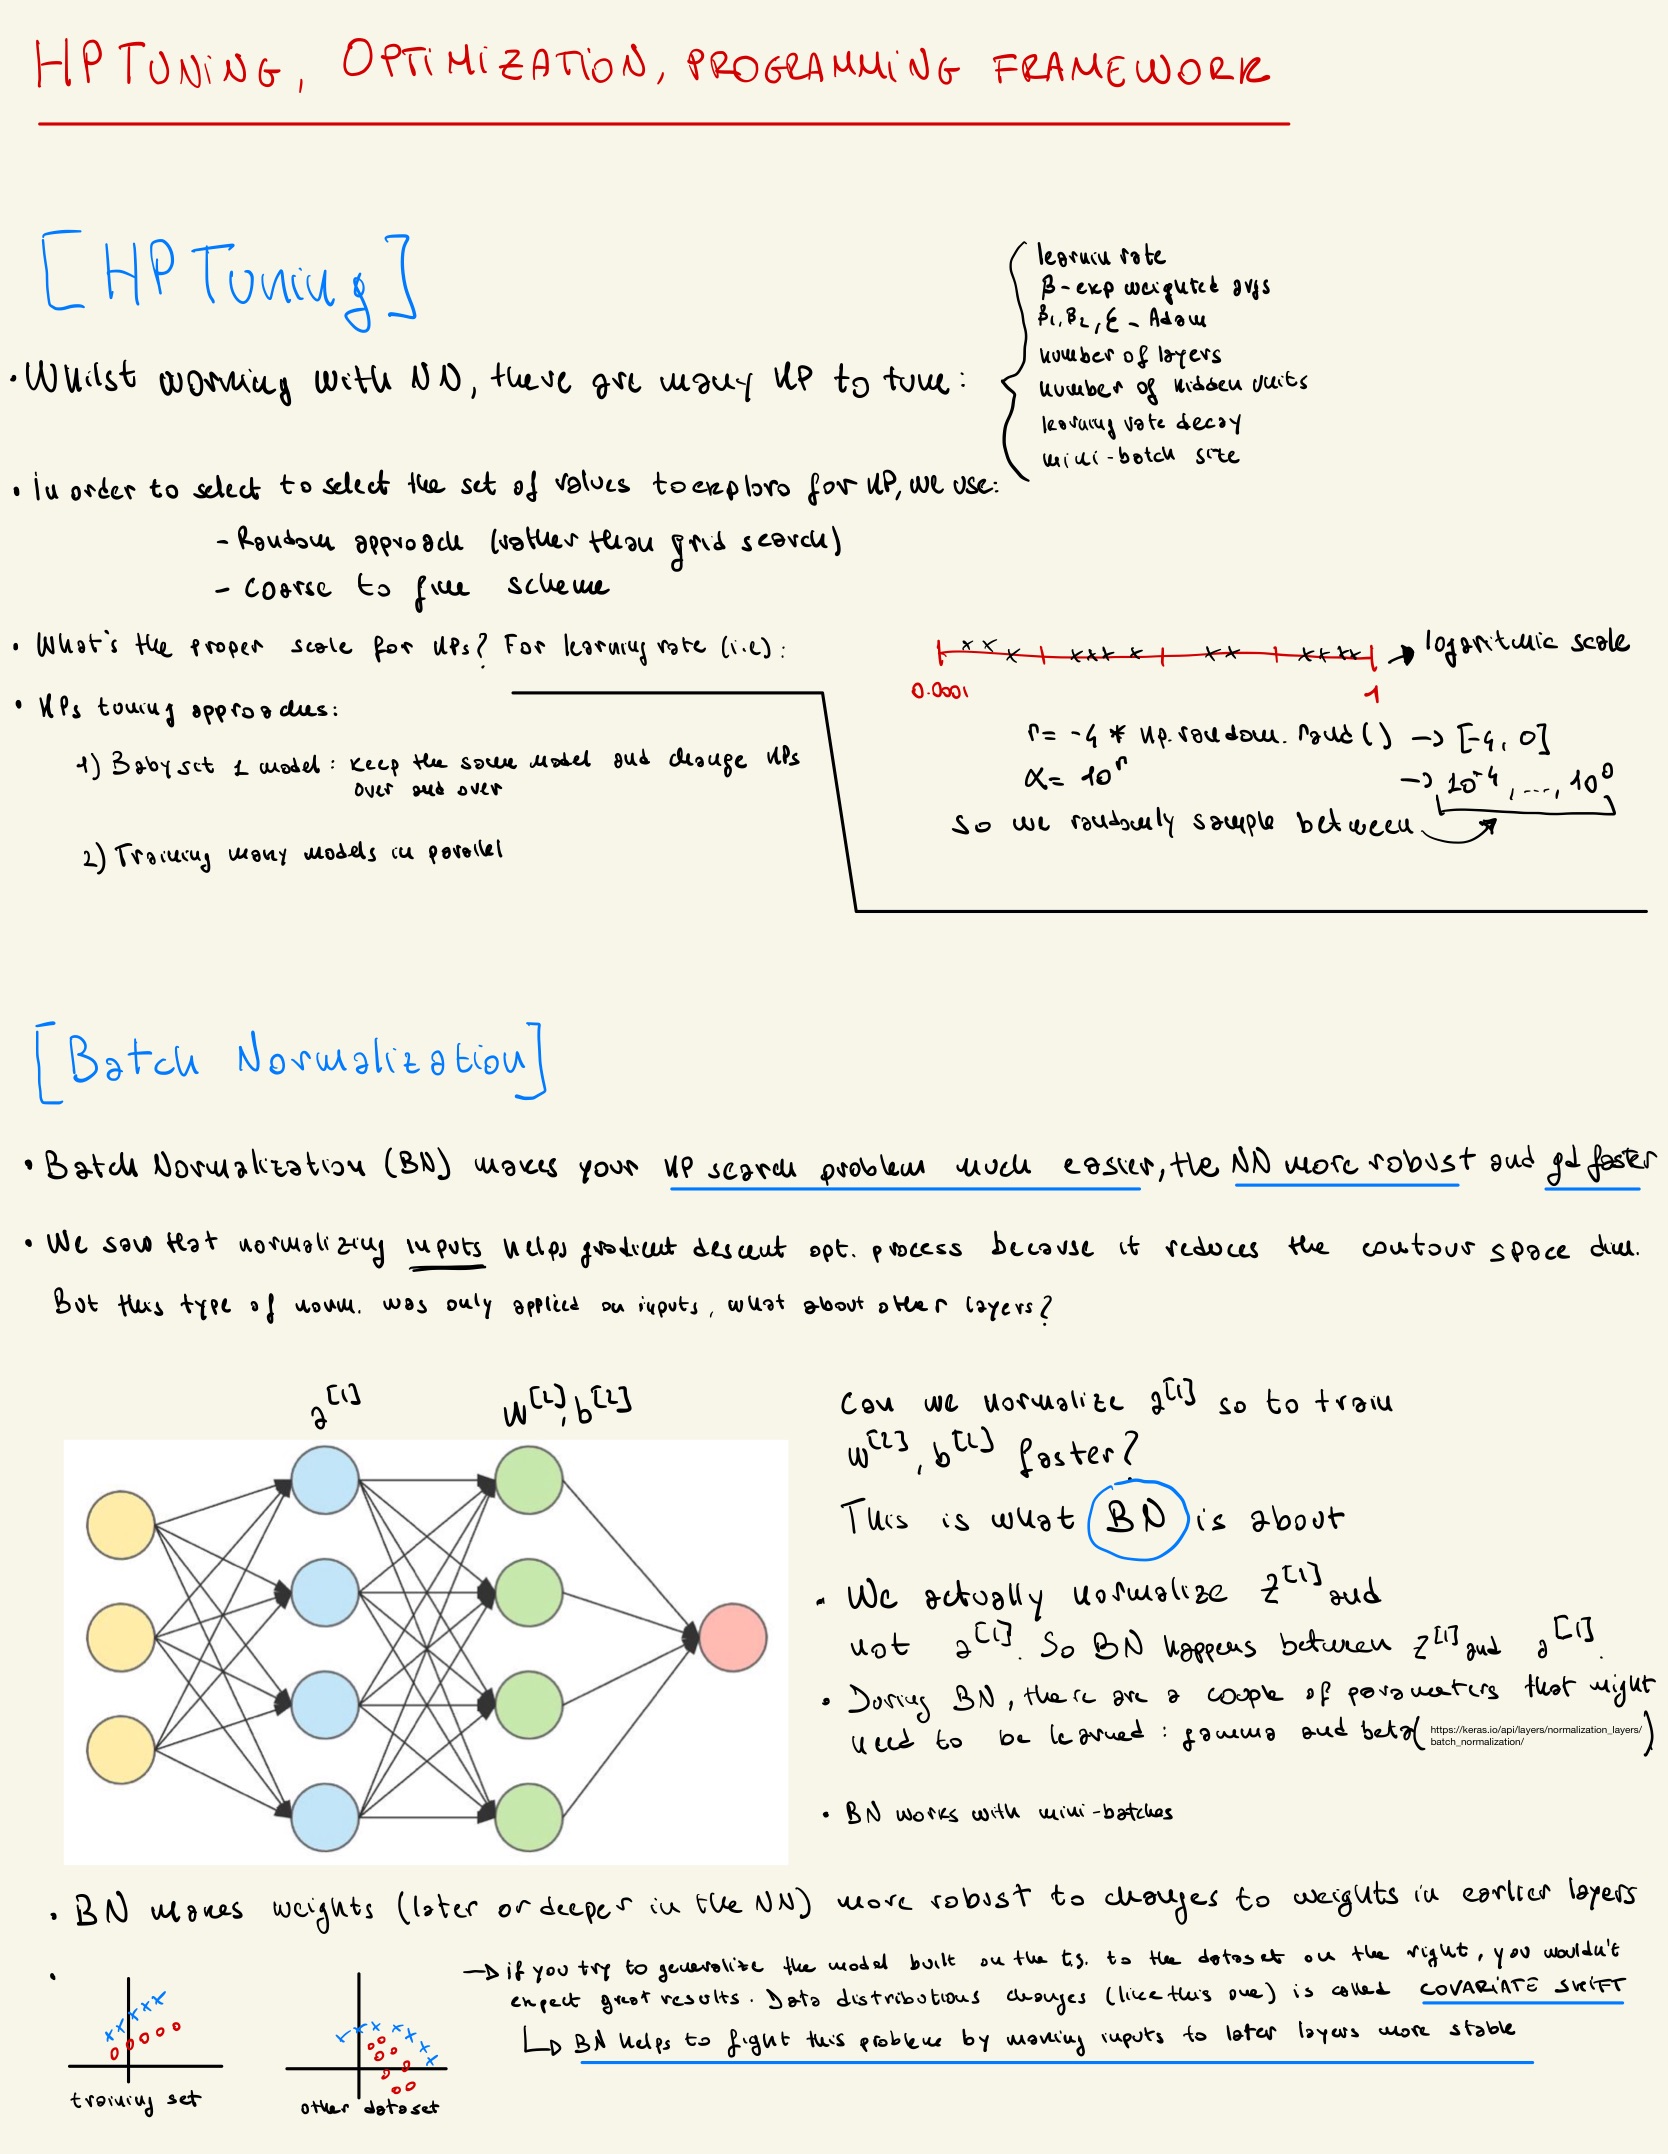 HP TUNING, OPTIMIZATION, PROGRAMMING FRAMEWORK
[HP Tuning]
• Whilst working with NN, there are many HP to tune:
learnin rate
β-exp weighted avgs
β1, β2, ε - Adam
number of layers
number of hidden units
learning rate decay
mini-batch size
• in order to select to select the set of values to explore for HP, we use:
- Random approach (rather than grid search)
- coarse to fine scheme
• What's the proper scale for HPs? For learning rate (i.e):
0.0001
1
logaritmic scale
r = -4 * np.random.rand() -> [-4, 0]
α = 10^r -> 10^-4, ..., 10^0
so we randomly sample between
• HPs tuning approaches:
1) Babysit 1 model: keep the same model and change HPs
over and over
2) Training many models in parallel
[Batch Normalization]
• Batch Normalization (BN) makes your HP search problem much easier, the NN more robust and gd faster
• We saw that normalizing inputs helps gradient descent opt. process because it reduces the contour space dim.
But this type of norm. was only applied on inputs, what about other layers?
a[1]
W[2], b[2]
Can we normalize a[1] so to train
w[2], b[2] faster?
This is what BN is about
• We actually normalize z[1] and
not a[1]. So BN happens between z[1] and a[1].
• During BN, there are a couple of parameters that might
need to be learned: gamma and beta (https://keras.io/api/layers/normalization_layers/
batch_normalization/)
• BN works with mini-batches
• BN makes weights (later or deeper in the NN) more robust to changes to weights in earlier layers
•
training set
other dataset
-> if you try to generalize the model built on the t.s. to the dataset on the right, you wouldn't
expect great results. Data distributions changes (like this one) is called COVARIATE SHIFT
-> BN helps to fight this problem by making inputs to later layers more stable